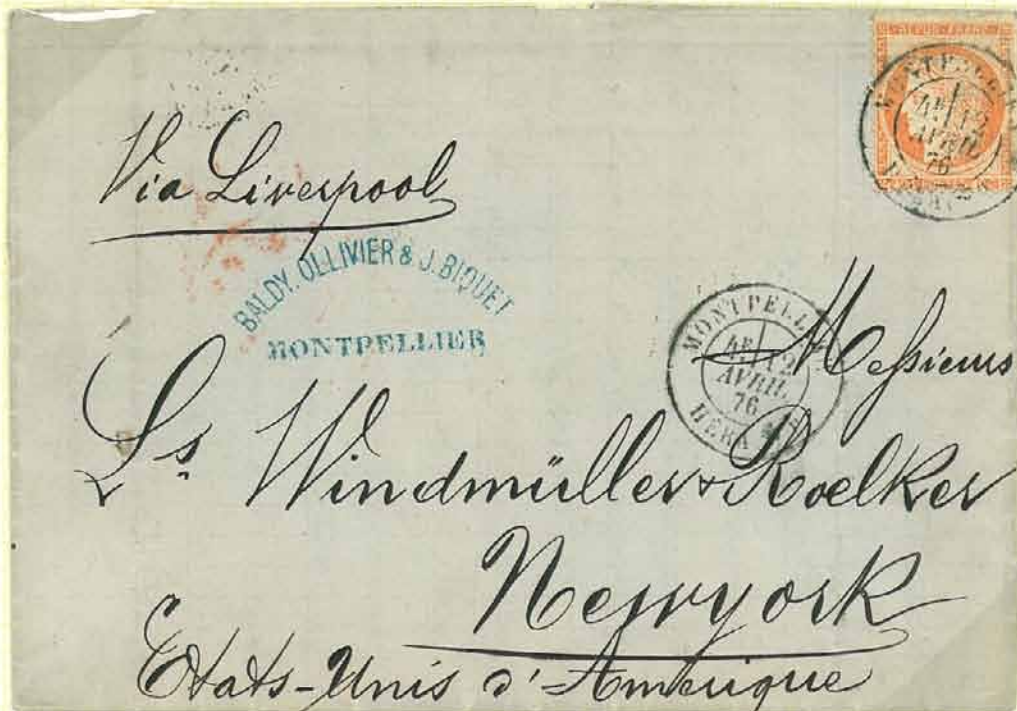 REPUB. FRANC.
MONTPELLIER
4E 12
AVRIL
76
Via Liverpool
BALDY, OLLIVIER & J. BIQUET
MONTPELLIER
MONTPELLI
4E 12
AVRIL
76
HERA
Messieurs
Ls. Windmüller & Roelker
Newyork
Etats-Unis d'Amérique